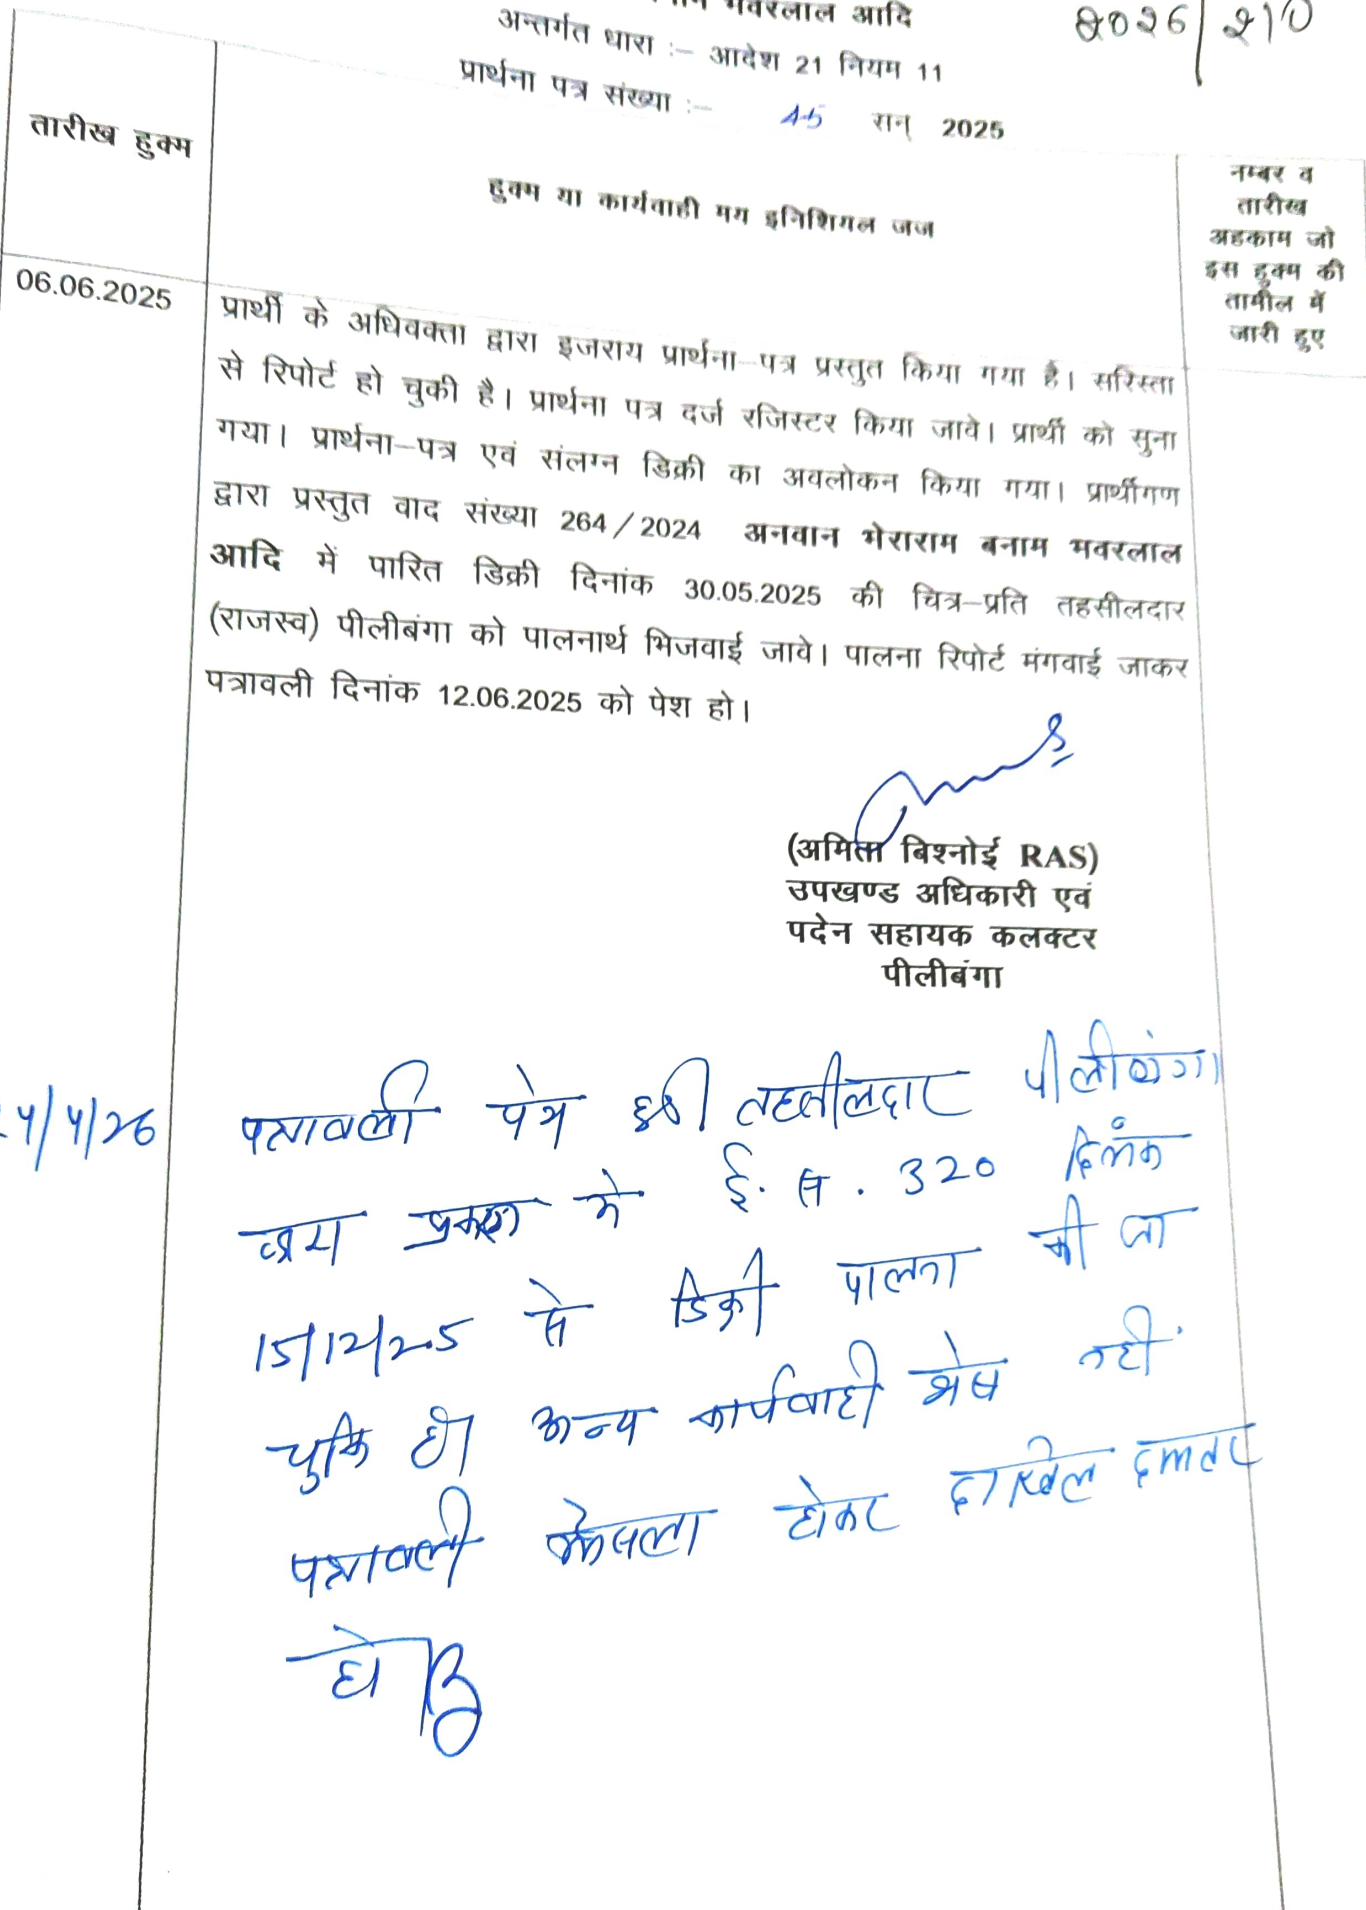 भवरलाल आदि
2026/210
अन्तर्गत धारा :– आदेश 21 नियम 11
प्रार्थना पत्र संख्या :– 45 सन् 2025
तारीख हुक्म
हुक्म या कार्यवाही मय इनिशियल जज
नम्बर व
तारीख
अहकाम जो
इस हुक्म की
तामील में
जारी हुए
06.06.2025
प्रार्थी के अधिवक्ता द्वारा इजराय प्रार्थना–पत्र प्रस्तुत किया गया है। सरिस्ता
से रिपोर्ट हो चुकी है। प्रार्थना पत्र दर्ज रजिस्टर किया जावे। प्रार्थी को सुना
गया। प्रार्थना–पत्र एवं संलग्न डिक्री का अवलोकन किया गया। प्रार्थीगण
द्वारा प्रस्तुत वाद संख्या 264/2024 अनवान भेराराम बनाम भवरलाल
आदि में पारित डिक्री दिनांक 30.05.2025 की चित्र–प्रति तहसीलदार
(राजस्व) पीलीबंगा को पालनार्थ भिजवाई जावे। पालना रिपोर्ट मंगवाई जाकर
पत्रावली दिनांक 12.06.2025 को पेश हो।
(अमिता बिश्नोई RAS)
उपखण्ड अधिकारी एवं
पदेन सहायक कलक्टर
पीलीबंगा
4/4/26
पत्रावली पेश हुई तहसीलदार पीलीबंगा
द्वारा प्रकरण में ई. स. 320 दिनांक
15/12/25 से डिक्री पालना की जा
चुकि है। अन्य कार्यवाही शेष नहीं
पत्रावली फैसला होकर दाखिल दफ्तर
हो